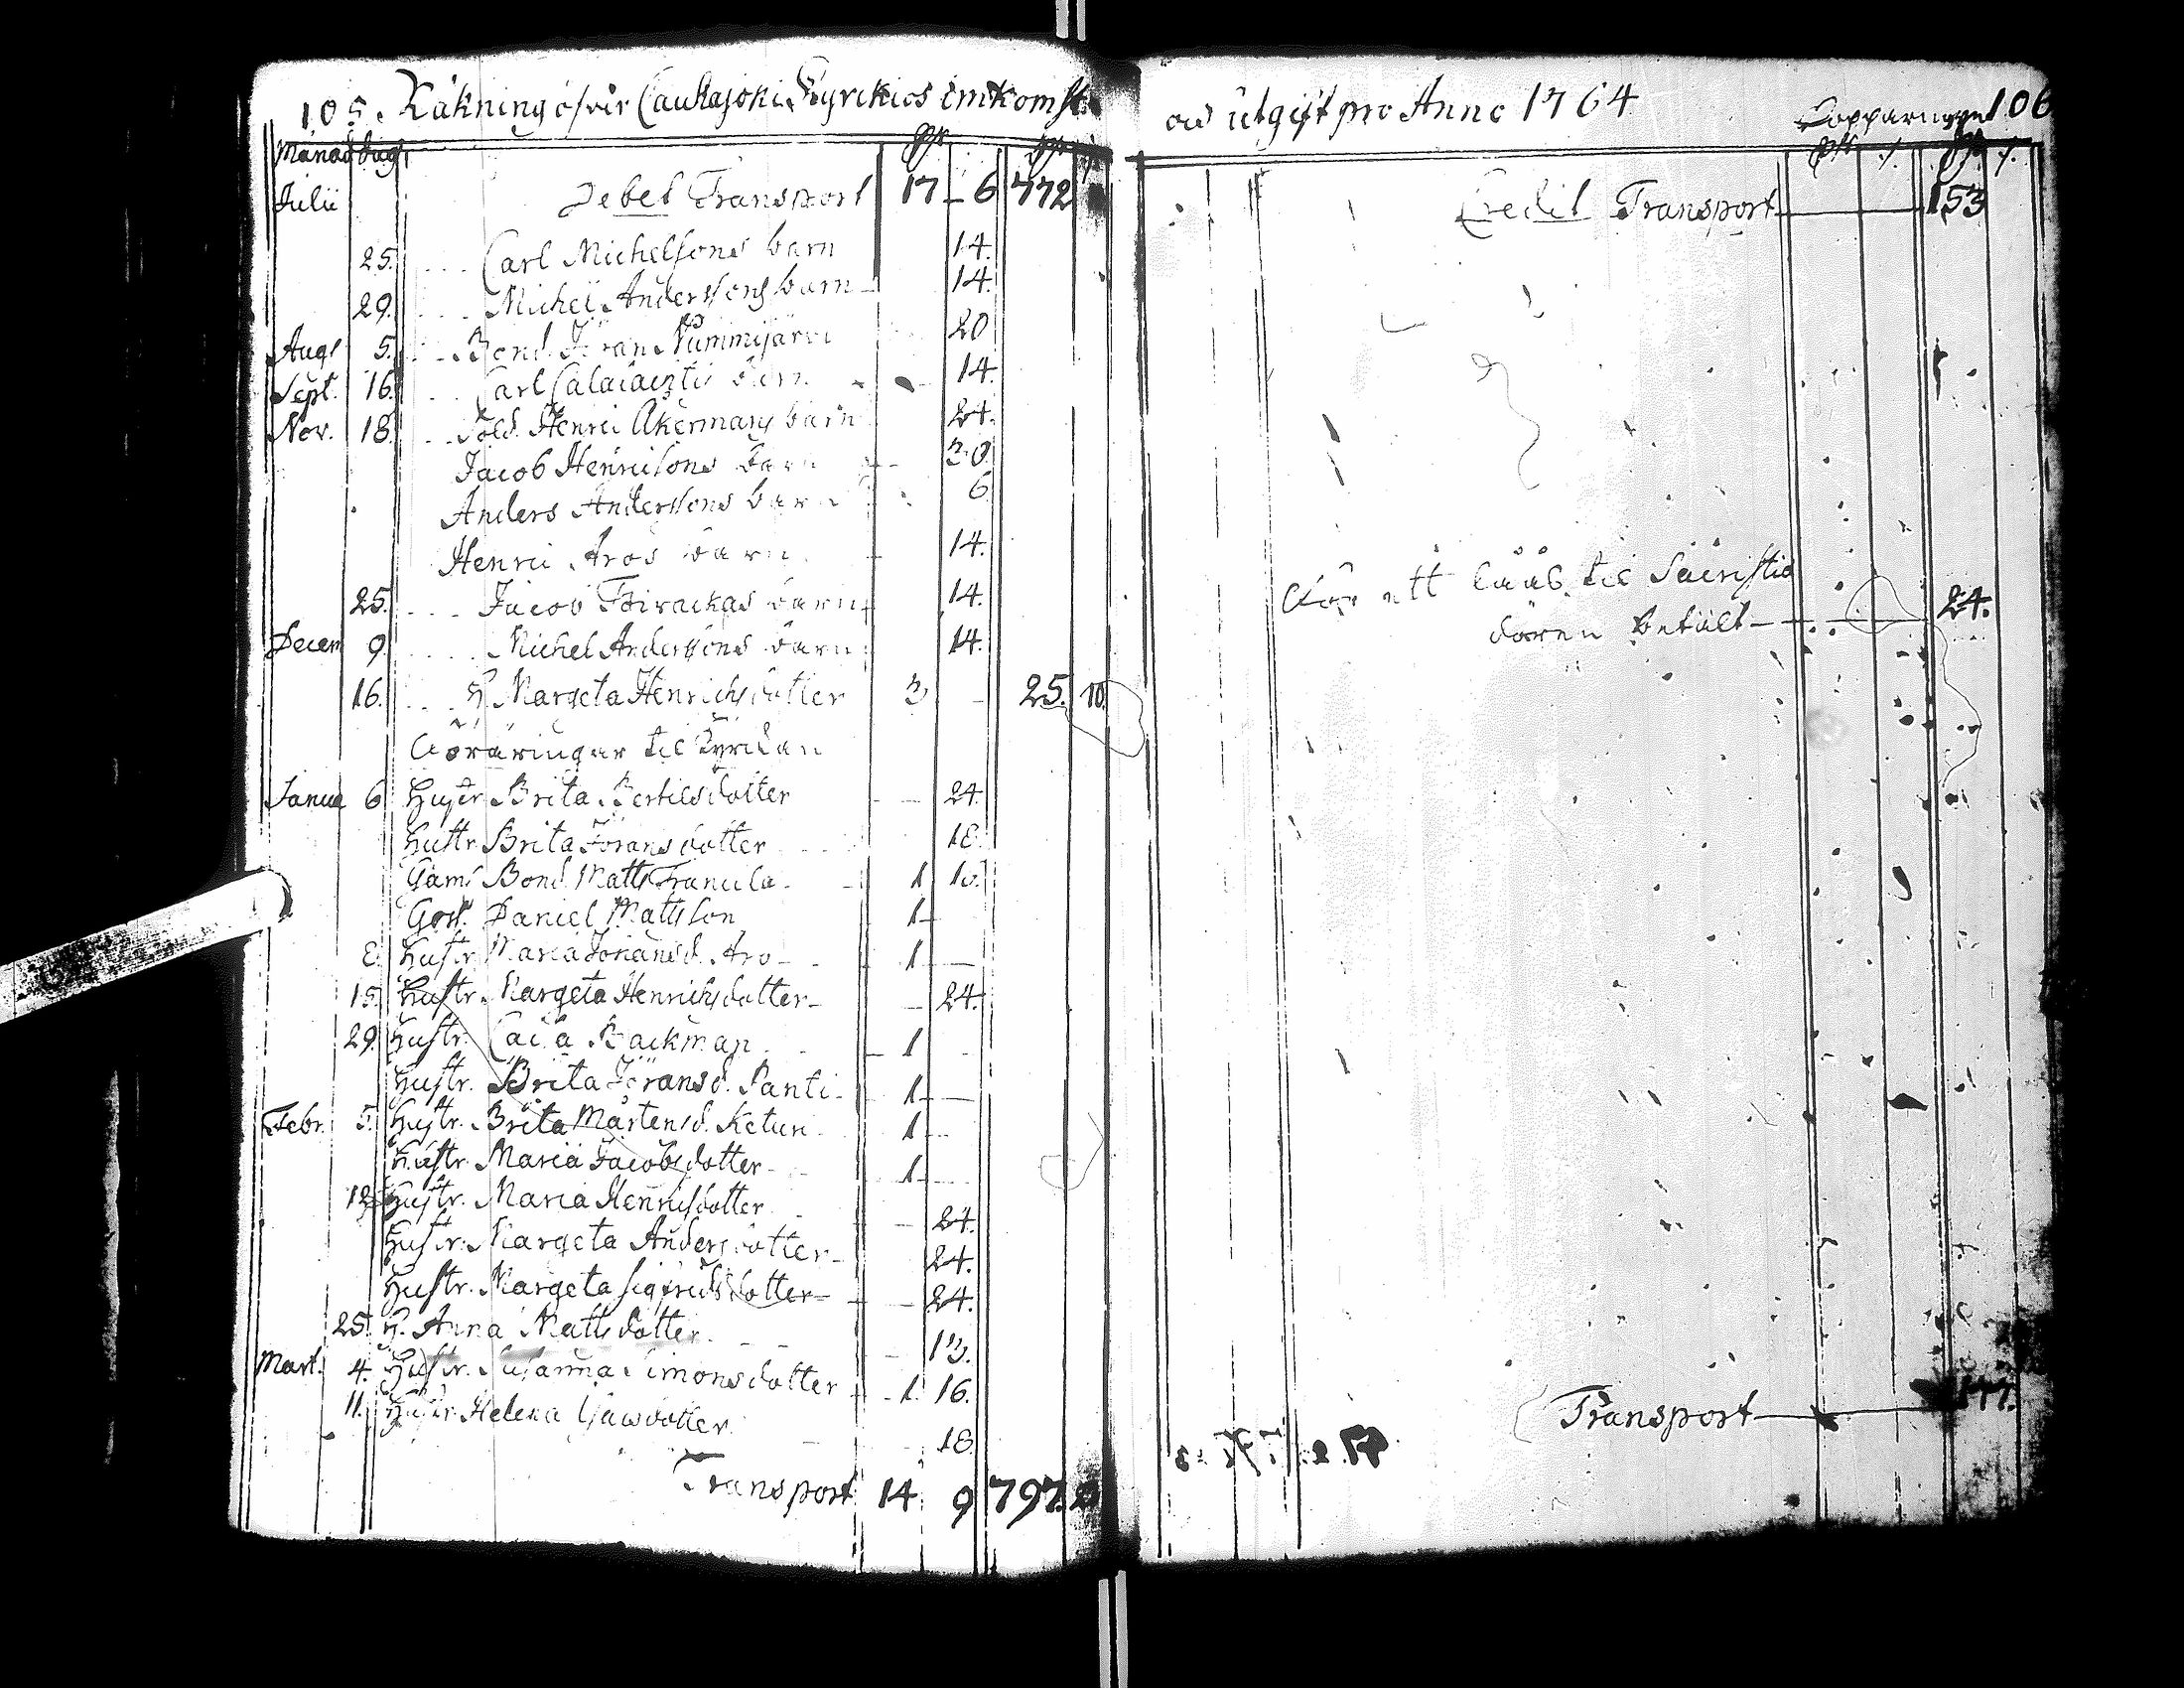 105. Räkning öfver Caukajoki Kyrckios imkomst
Månad dag
Julii Debet Transport 17 - 6 772
25. Carl Michelsons barn 14.
29. Michel Anderssons barn 14.
Augs 5. Bond. Jöran Nummijärvi 20
Sept. 16. Carl 14.
Nov. 18. Sold. Henric Åkermans barn 24.
Jacob Henricsons barn 30.
Anders Anderssons barn 6
Henric Aros barn 14.
25. Jacob barn 14.
Decem 9. Michel Anderssons barn 14.
16. H. Margeta Henrichsdotter 3 - 25. 10.
til Kyrckan
Janua 6 Hustr. Brita Bertilsdotter 24.
Hustr. Brita Jöransdotter 18.
Gaml Bond. Matts 1
Goss. Daniel Mattsson 1
8. Hustr. Maria Johansd. Aro 1
15. Hustr. Margeta Henrichsdotter 24.
29. Hustr. Caisa Backman 1
Hustr. Brita Jöransd. Panti 1
Febr. 5. Hustr. Brita Mårtensd. Keturi 1
Hustr. Maria Jacobsdotter 1
12. Hustr. Maria Henricsdotter 24.
Hustr. Margeta Andersdotter 24.
Hustr. Margeta Sigfridsdotter 24.
25. H. Anna Mattsdotter 13.
Mart. 4. Hustr. Susanna Simonsdotter 1 16.
11. Hustr. Helena 18.
Transport 14 9 797.
och utgift pro Anno 1764 106
Credit Transport 153
För ett låås til Sacristie
dören betalt 24.
Transport 177.